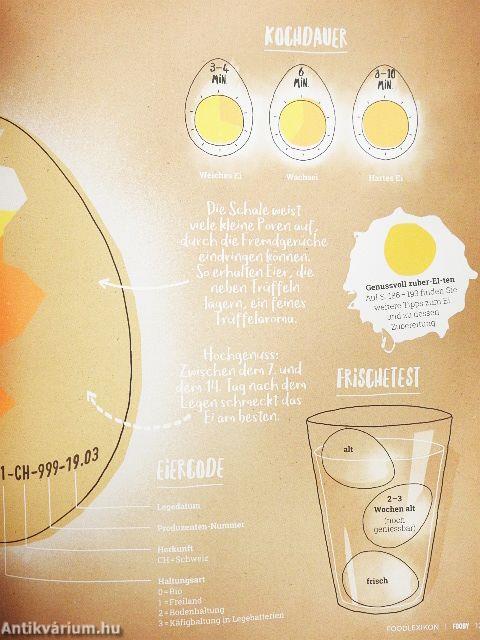 KOCHDAUER
3-4
MIN.
6
MIN.
8-10
MIN.
Weiches Ei
Wachsei
Hartes Ei
Die Schale weist
viele kleine Poren auf,
durch die Fremdgerüche
eindringen können.
So erhalten Eier, die
neben Trüffeln
lagern, ein feines
Trüffelaroma.
Genussvoll zuber-EI-ten
Auf S. 186–193 finden Sie
weitere Tipps zum Ei
und zu dessen
Zubereitung.
Hochgenuss:
Zwischen dem 7. und
dem 14. Tag nach dem
Legen schmeckt das
Ei am besten.
FRISCHETEST
alt
2–3
Wochen alt
(noch
geniessbar)
frisch
EIERCODE
1-CH-999-19.03
Legedatum
Produzenten-Nummer
Herkunft
CH = Schweiz
Haltungsart
0 = Bio
1 = Freiland
2 = Bodenhaltung
3 = Käfighaltung in Legebatterien
FOODLEXIKON | FOOBY
Antikvárium.hu